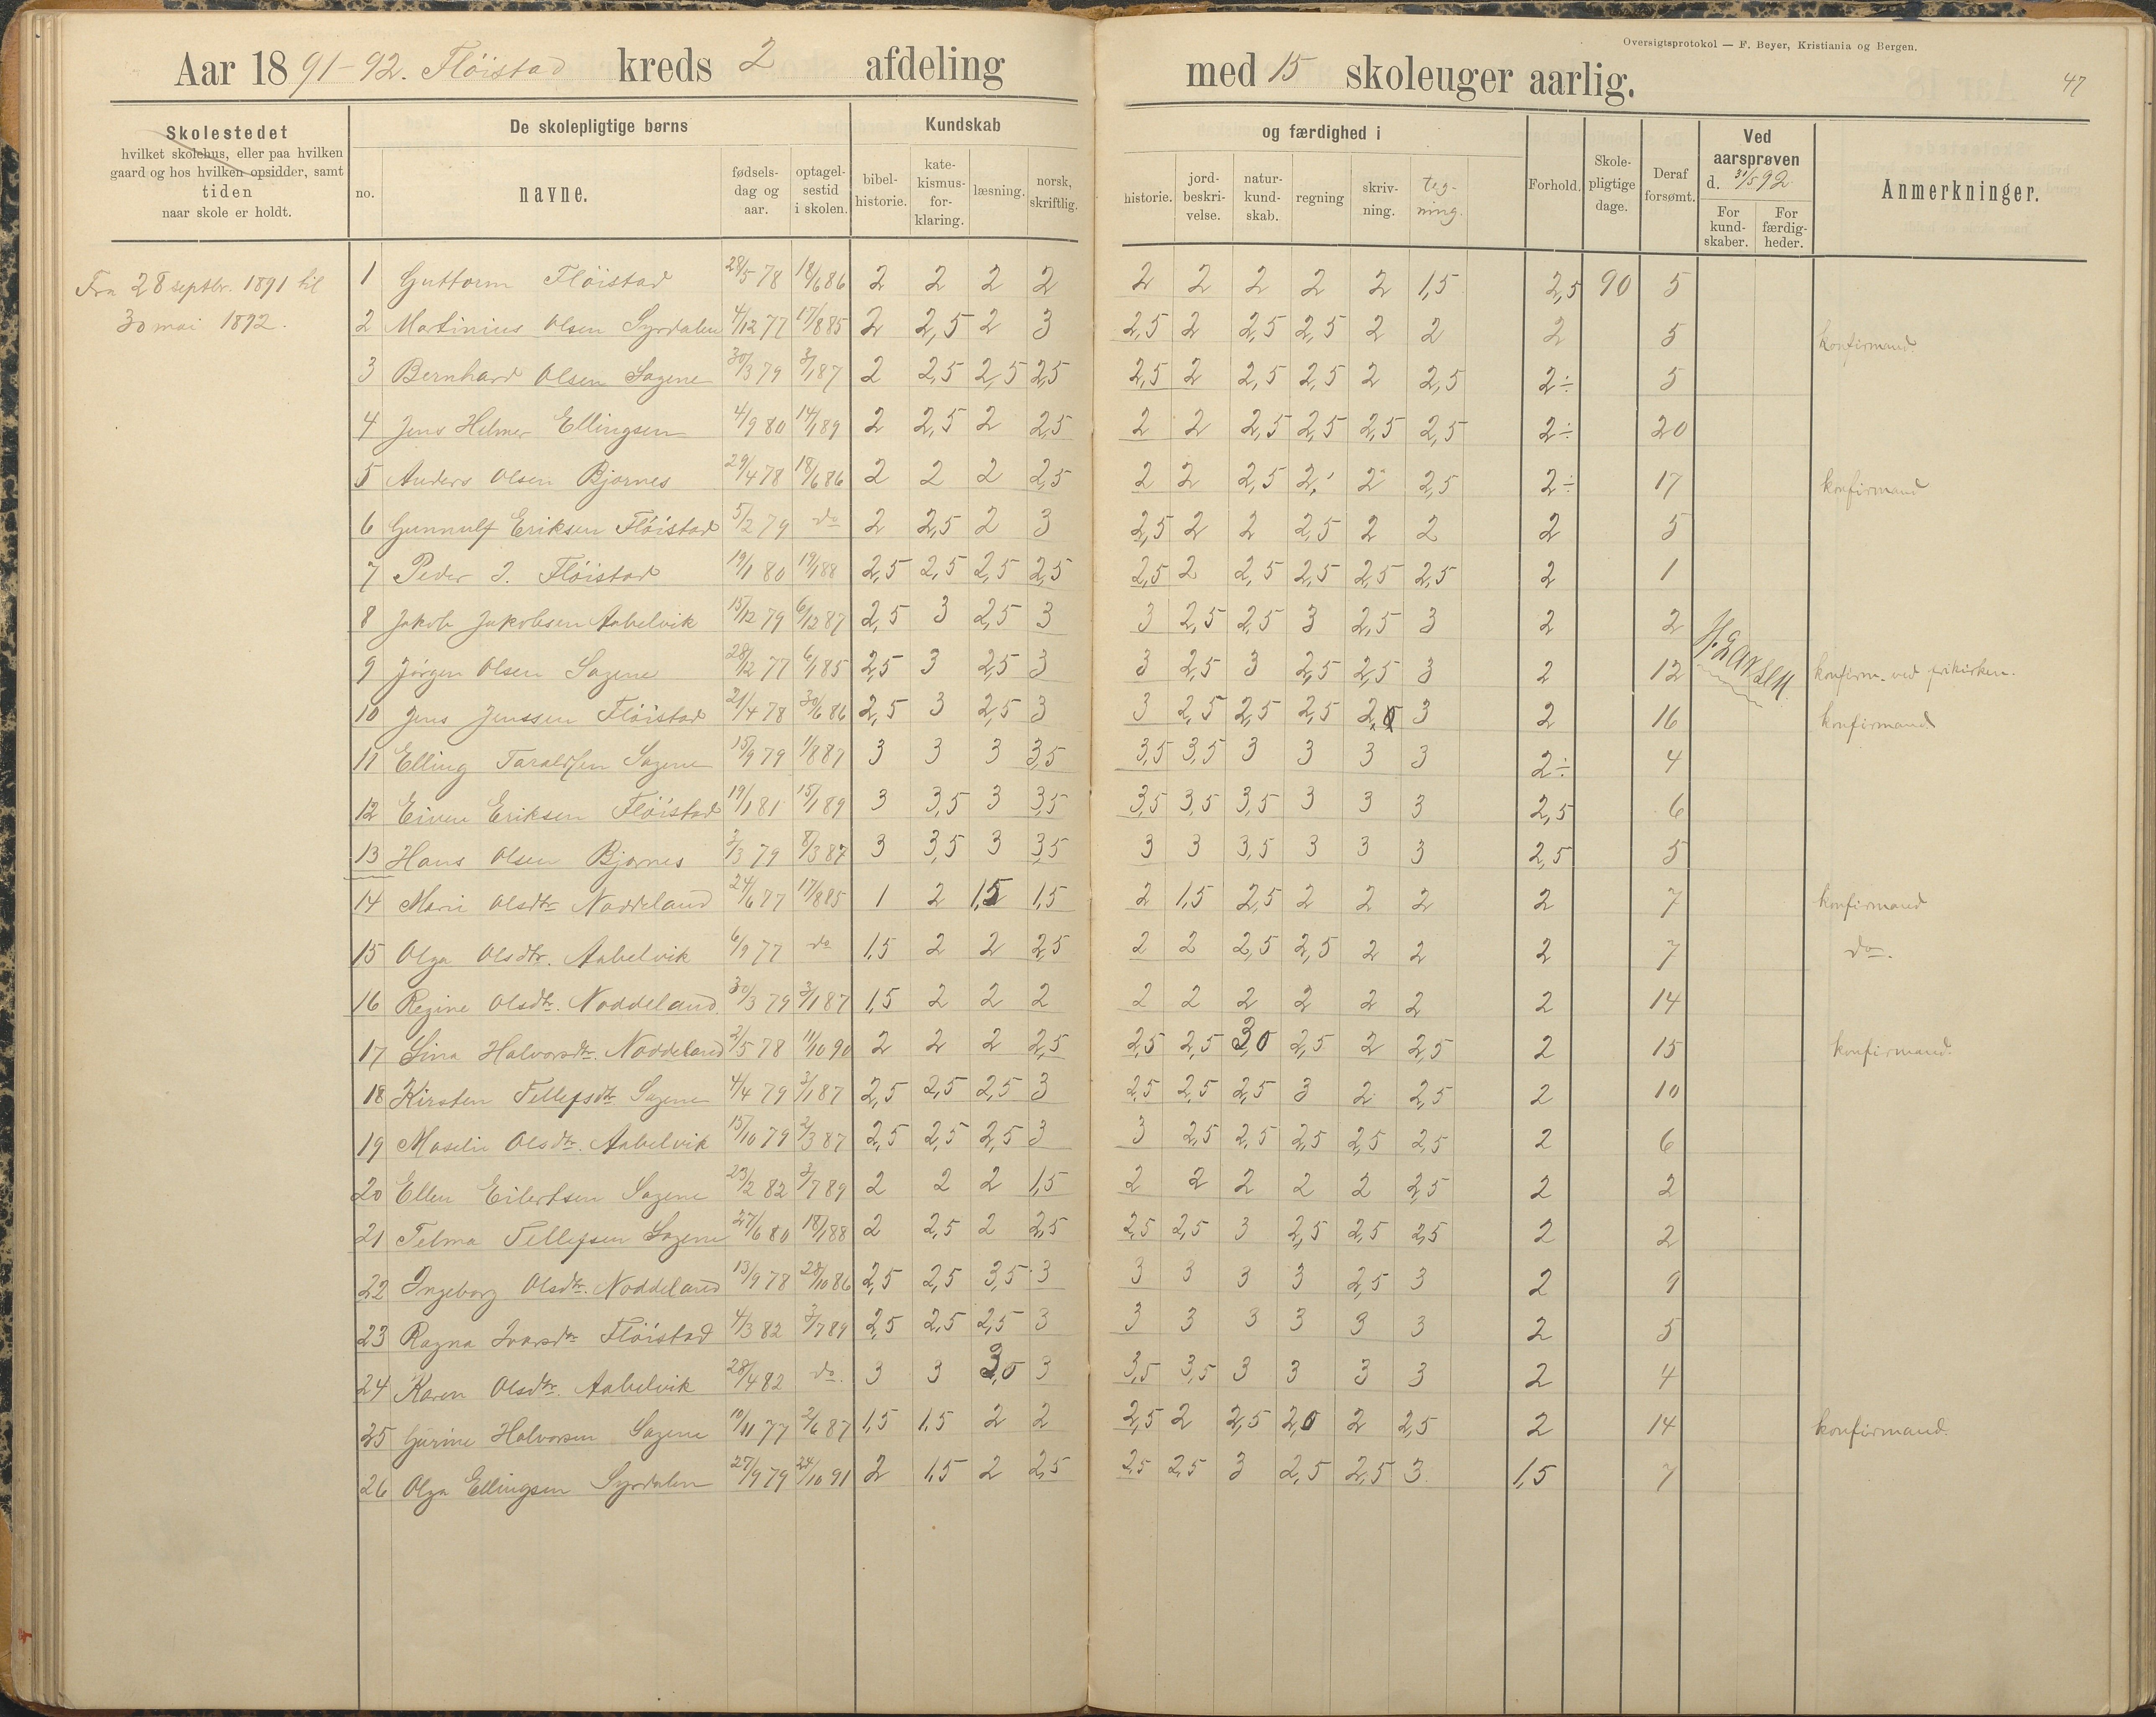 Oversigtsprotokol — F. Beyer, Kristiania og Bergen.
47
Aar 1891-92. Flöistad kreds 2 afdeling med 15 skoleuger aarlig.
Skolestedet
hvilket skolehus, eller paa hvilken
gaard og hos hvilken opsidder, samt
tiden
naar skole er holdt.
De skolepligtige børns
no. navne. fødsels-dag og aar. optagel-sestid i skolen.
Kundskab og færdighed i
bibel-historie. kate-kismus-for-klaring. læsning. norsk, skriftlig. historie. jord-beskri-velse. natur-kund-skab. regning skriv-ning. teg-ning.
Forhold. Skole-pligtige dage. Deraf forsømt.
Ved aarsprøven d. 31/5 92.
For kund-skaber. For færdig-heder.
Anmerkninger.
Fra 28 septbr. 1891 til
30 mai 1892.
1 Guttorm Flöistad 28/5 78 18/6 86 2 2 2 2 2 2 2 2 2 1,5 2,5 90 5
2 Martinius Olsen Syrdalen 4/12 77 17/8 85 2 2,5 2 3 2,5 2 2,5 2,5 2 2 2 5 konfirmand
3 Bernhard Olsen Sagene 30/3 79 3/1 87 2 2,5 2,5 2,5 2,5 2 2,5 2,5 2 2,5 2÷ 5
4 Jens Helmer Ellingsen 4/9 80 14/1 89 2 2,5 2 2,5 2 2 2,5 2,5 2,5 2,5 2÷ 20
5 Anders Olsen Bjornes 29/4 78 18/6 86 2 2 2 2,5 2 2 2,5 2,' 2 2,5 2÷ 17 konfirmand
6 Gunnulf Eriksen Flöistad 5/2 79 do 2 2,5 2 3 2,5 2 2 2,5 2 2 2 5
7 Peder J. Flöistad 19/1 80 19/1 88 2,5 2,5 2,5 2,5 2,5 2 2,5 2,5 2,5 2,5 2 1
8 Jakob Jakobsen Aabelvik 15/12 79 6/12 87 2,5 3 2,5 3 3 2,5 2,5 3 2,5 3 2 2
9 Jørgen Olsen Sagene 28/12 77 6/1 85 2,5 3 2,5 3 3 2,5 3 2,5 2,5 3 2 12 H. Larsen. konfirm. ved frikirken.
10 Jens Jenssen Flöistad 21/4 78 30/6 86 2,5 3 2,5 3 3 2,5 2,5 2,5 2,0 3 2 16 konfirmand
11 Elling Taraldsen Sagene 15/9 79 1/8 87 3 3 3 3,5 3,5 3,5 3 3 3 3 2÷ 4
12 Eivin Eriksen Flöistad 19/1 81 15/1 89 3 3,5 3 3,5 3,5 3,5 3,5 3 3 3 2,5 6
13 Hans Olsen Bjornes 3/3 79 8/3 87 3 3,5 3 3,5 3 3 3,5 3 3 3 2,5 5
14 Marie Olsdtr Noddeland 24/6 77 17/8 85 1 2 1,5 1,5 2 1,5 2,5 2 2 2 2 7 konfirmand
15 Olga Olsdtr. Aabelvik 6/9 77 do 1,5 2 2 2,5 2 2 2,5 2,5 2 2 2 7 do.
16 Regine Olsdtr. Noddeland 30/3 79 3/1 87 1,5 2 2 2 2 2 2 2 2 2 2 14
17 Lina Halvorsdtr. Noddeland 2/5 78 11/10 90 2 2 2 2,5 2,5 2,5 3,0 2,5 2 2,5 2 15 konfirmand.
18 Kirsten Tellefsdtr Sagene 4/4 79 3/1 87 2,5 2,5 2,5 3 2,5 2,5 2,5 3 2 2,5 2 10
19 Maselie Olsdtr. Aabelvik 15/10 79 2/3 87 2,5 2,5 2,5 3 3 2,5 2,5 2,5 2,5 2,5 2 6
20 Ellen Eilertsen Sagene 23/2 82 3/7 89 2 2 2 1,5 2 2 2 2 2 2,5 2 2
21 Telma Tellefsen Sagene 27/6 80 18/1 88 2 2,5 2 2,5 2,5 2,5 3 2,5 2,5 2,5 2 2
22 Ingeborg Olsdtr. Noddeland 13/9 78 28/10 86 2,5 2,5 3,5 3 3 3 3 3 2,5 3 2 9
23 Ragna Ivarsdtr Flöistad 4/3 82 3/7 89 2,5 2,5 2,5 3 3 3 3 3 3 3 2 5
24 Karen Olsdtr. Aabelvik 28/4 82 do. 3 3 3,0 3 3,5 3,5 3 3 3 3 2 4
25 Gurine Halvorsen Sagene 10/11 77 2/6 87 1,5 1,5 2 2 2,5 2 2,5 2,0 2 2,5 2 14 konfirmand.
26 Olga Ellingsen Syrdalen 27/9 79 24/10 91 2 1,5 2 2,5 2,5 2,5 3 2,5 2,5 3 1,5 7